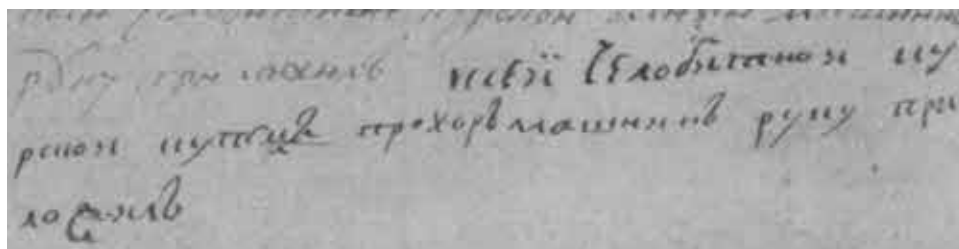 руку приложилъ ксеї челобитной ку
рской купецъ прохоръ машнинъ руку при
ложилъ